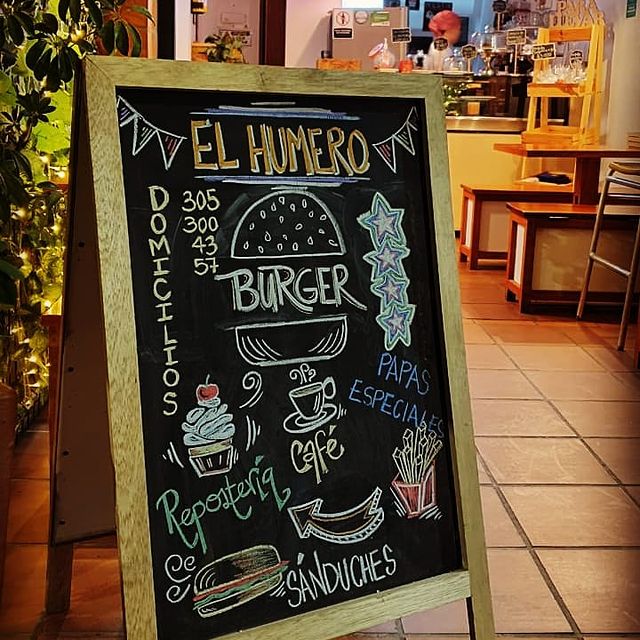 EL HUMERO
DOMICILIOS
305
300
43
57
BURGER
PAPAS
ESPECIALES
Café
Repostería
SÁNDUCHES